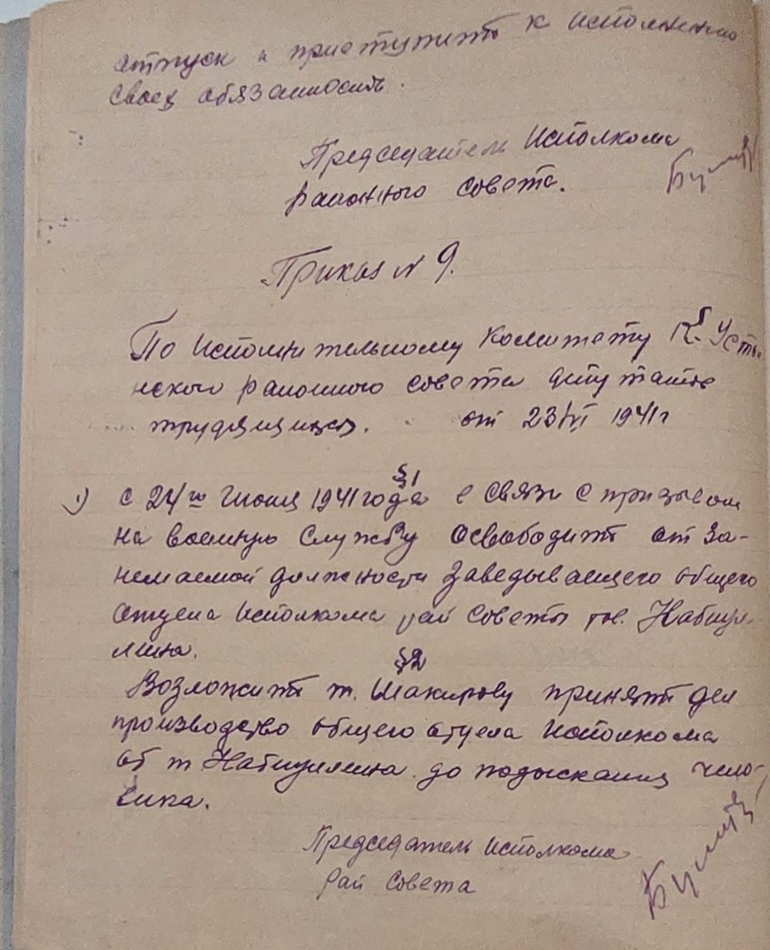 отпуск и приступить к исполнению
своей обязанность.
Председатель Исполкома
районного совета.
Приказ № 9.
По исполнительному комитету К. Усть-
нского районного совета депутатов
трудящихся. от 23/VI 1941 г
§1
1) с 24го июня 1941 года в связи с призывом
на военную службу освободить от за-
немаемой должности заведывающего общего
отдела исполкома рай советы тов. Набиул-
лина.
§2
Возложить т. Шакирову принять дел
производство общего отдела исполкома
от т Набиуллина до подыскания чело-
века.
Председатель исполкома
рай совета